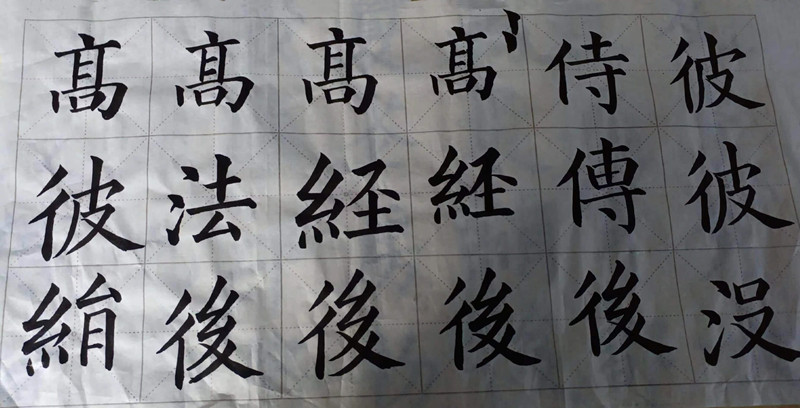 髙髙髙髙侍彼
彼法経経傳彼
絹後後後後没